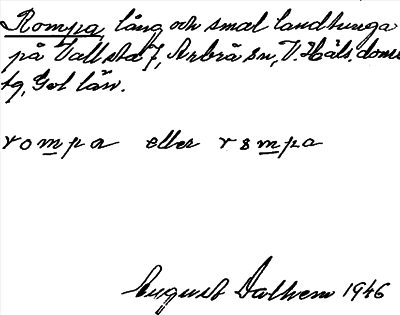 Rompa, lång och smal landtunga
på Vallsta 7, Arbrå sn, V. Häls. doms
tg, Gvl län.
rompa eller rsmpa
August Dalhem 1946